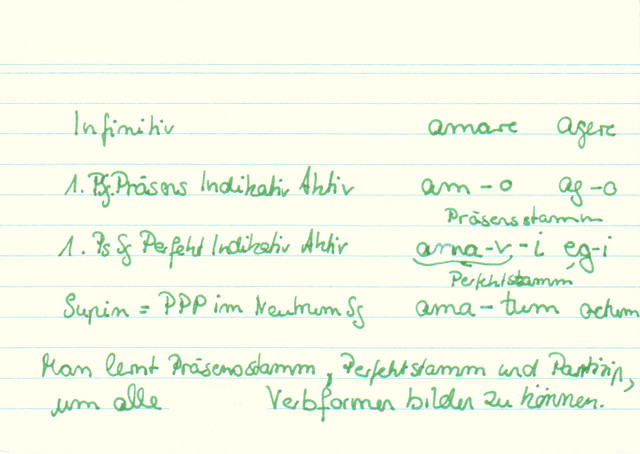 Infinitiv amare agere
1. Ps Sg. Präsens Indikativ Aktiv am-o ag-o
Präsensstamm
1. Ps Sg Perfekt Indikativ Aktiv ama-v-i eg-i
Perfektstamm
Supin = PPP im Neutrum Sg ama-tum actum
Man lernt Präsensstamm, Perfektstamm und Partizip,
um alle Verbformen bilden zu können.